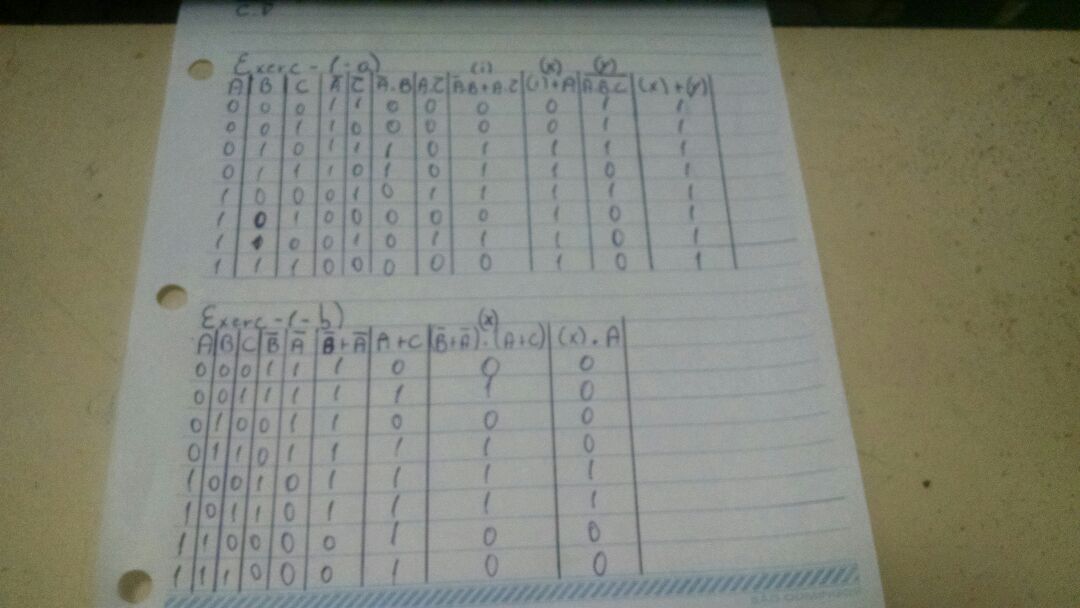 C.D
Exerc - 1 - a)
(i) (x) (y)
A B C A̅ C̅ A̅.B A.C̅ A̅.B+A.C̅ (i)+A A̅.B̅.C̅ (x)+(y)
0 0 0 1 1 0 0 0 0 1 1
0 0 1 1 0 0 0 0 0 1 1
0 1 0 1 1 1 0 1 1 1 1
0 1 1 1 0 1 0 1 1 0 1
1 0 0 0 1 0 1 1 1 1 1
1 0 1 0 0 0 0 0 1 0 1
1 0 0 1 0 1 1 1 0 1
1 1 1 0 0 0 0 0 1 0 1
Exerc - 1 - b)
(x)
A B C B̅ A̅ B̅+A̅ A+C (B̅+A̅).(A+C) (x).A
0 0 0 1 1 1 0 0 0
0 0 1 1 1 1 1 1 0
0 1 0 0 1 1 0 0 0
0 1 1 0 1 1 1 1 0
1 0 0 1 0 1 1 1 1
1 0 1 1 0 1 1 1 1
1 1 0 0 0 0 1 0 0
1 1 1 0 0 0 1 0 0
SÃO DOMINGOS